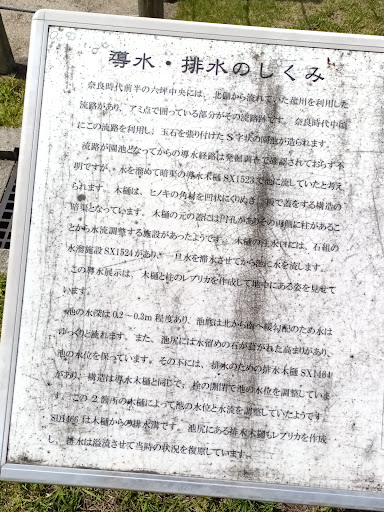 導水・排水のしくみ
奈良時代前半の六坪中央には、北側から流れていた菰川を利用した
流路があり、アミ点で囲っている部分がその流路跡です。奈良時代中頃
にこの流路を利用し、玉石を張り付けたS字状の園池が造られます。
流路が園池となってからの導水経路は発掘調査で確認されておらず不
明ですが、水を溜めて暗渠の導水木樋SX1523で池に流していたと考え
られます。木樋は、ヒノキの角材を凹状にくりぬき、板で蓋をする構造の
暗渠となっています。木樋の元の蓋には円孔がありその両側に柱があるこ
とから水流調整する施設があったようです。木樋の注水口には、石組の
水溜施設SX1524があり、一旦水を溜水させてから池に水を流します。
この導水展示は、木樋と柱のレプリカを作成して地中にある姿を見せて
います。
池の水深は0.2～0.3m程度あり、池底は北から南へ緩勾配のため水は
ゆっくりと流れます。また、池尻には水留めの石が葺かれた高まりがあり、
池の水位を保っています。その下には、排水のための排水木樋SX1464
があり、構造は導水木樋と同じで、栓の開閉で池の水位を調整していま
す。この2箇所の木樋によって池の水位と水流を調整していたようです。
SD1466は木樋からの排水溝です。池尻にある排水木樋もレプリカを作成
し、排水は溢流させて当時の状況を復原しています。